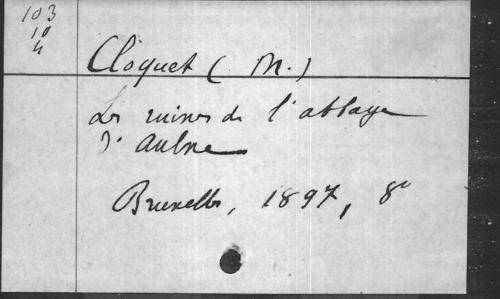 103
10
4
Cloquet (M.)
Les ruines de l'abbaye
d'Aulne
Bruxelles, 1897, 8°